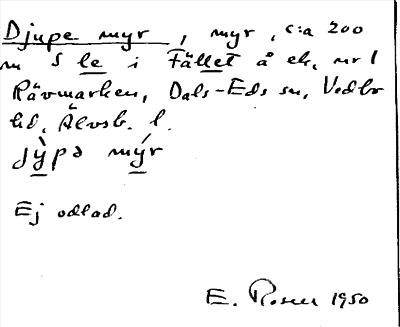 Djupe myr, myr, c:a 200
m S le i Fället å ek. nr 1
Rävmarken, Dals-Eds sn, Vedbo
hd, Älvsb. l.
jy̖pə my̗r
Ej odlad.
E. Rosen 1950